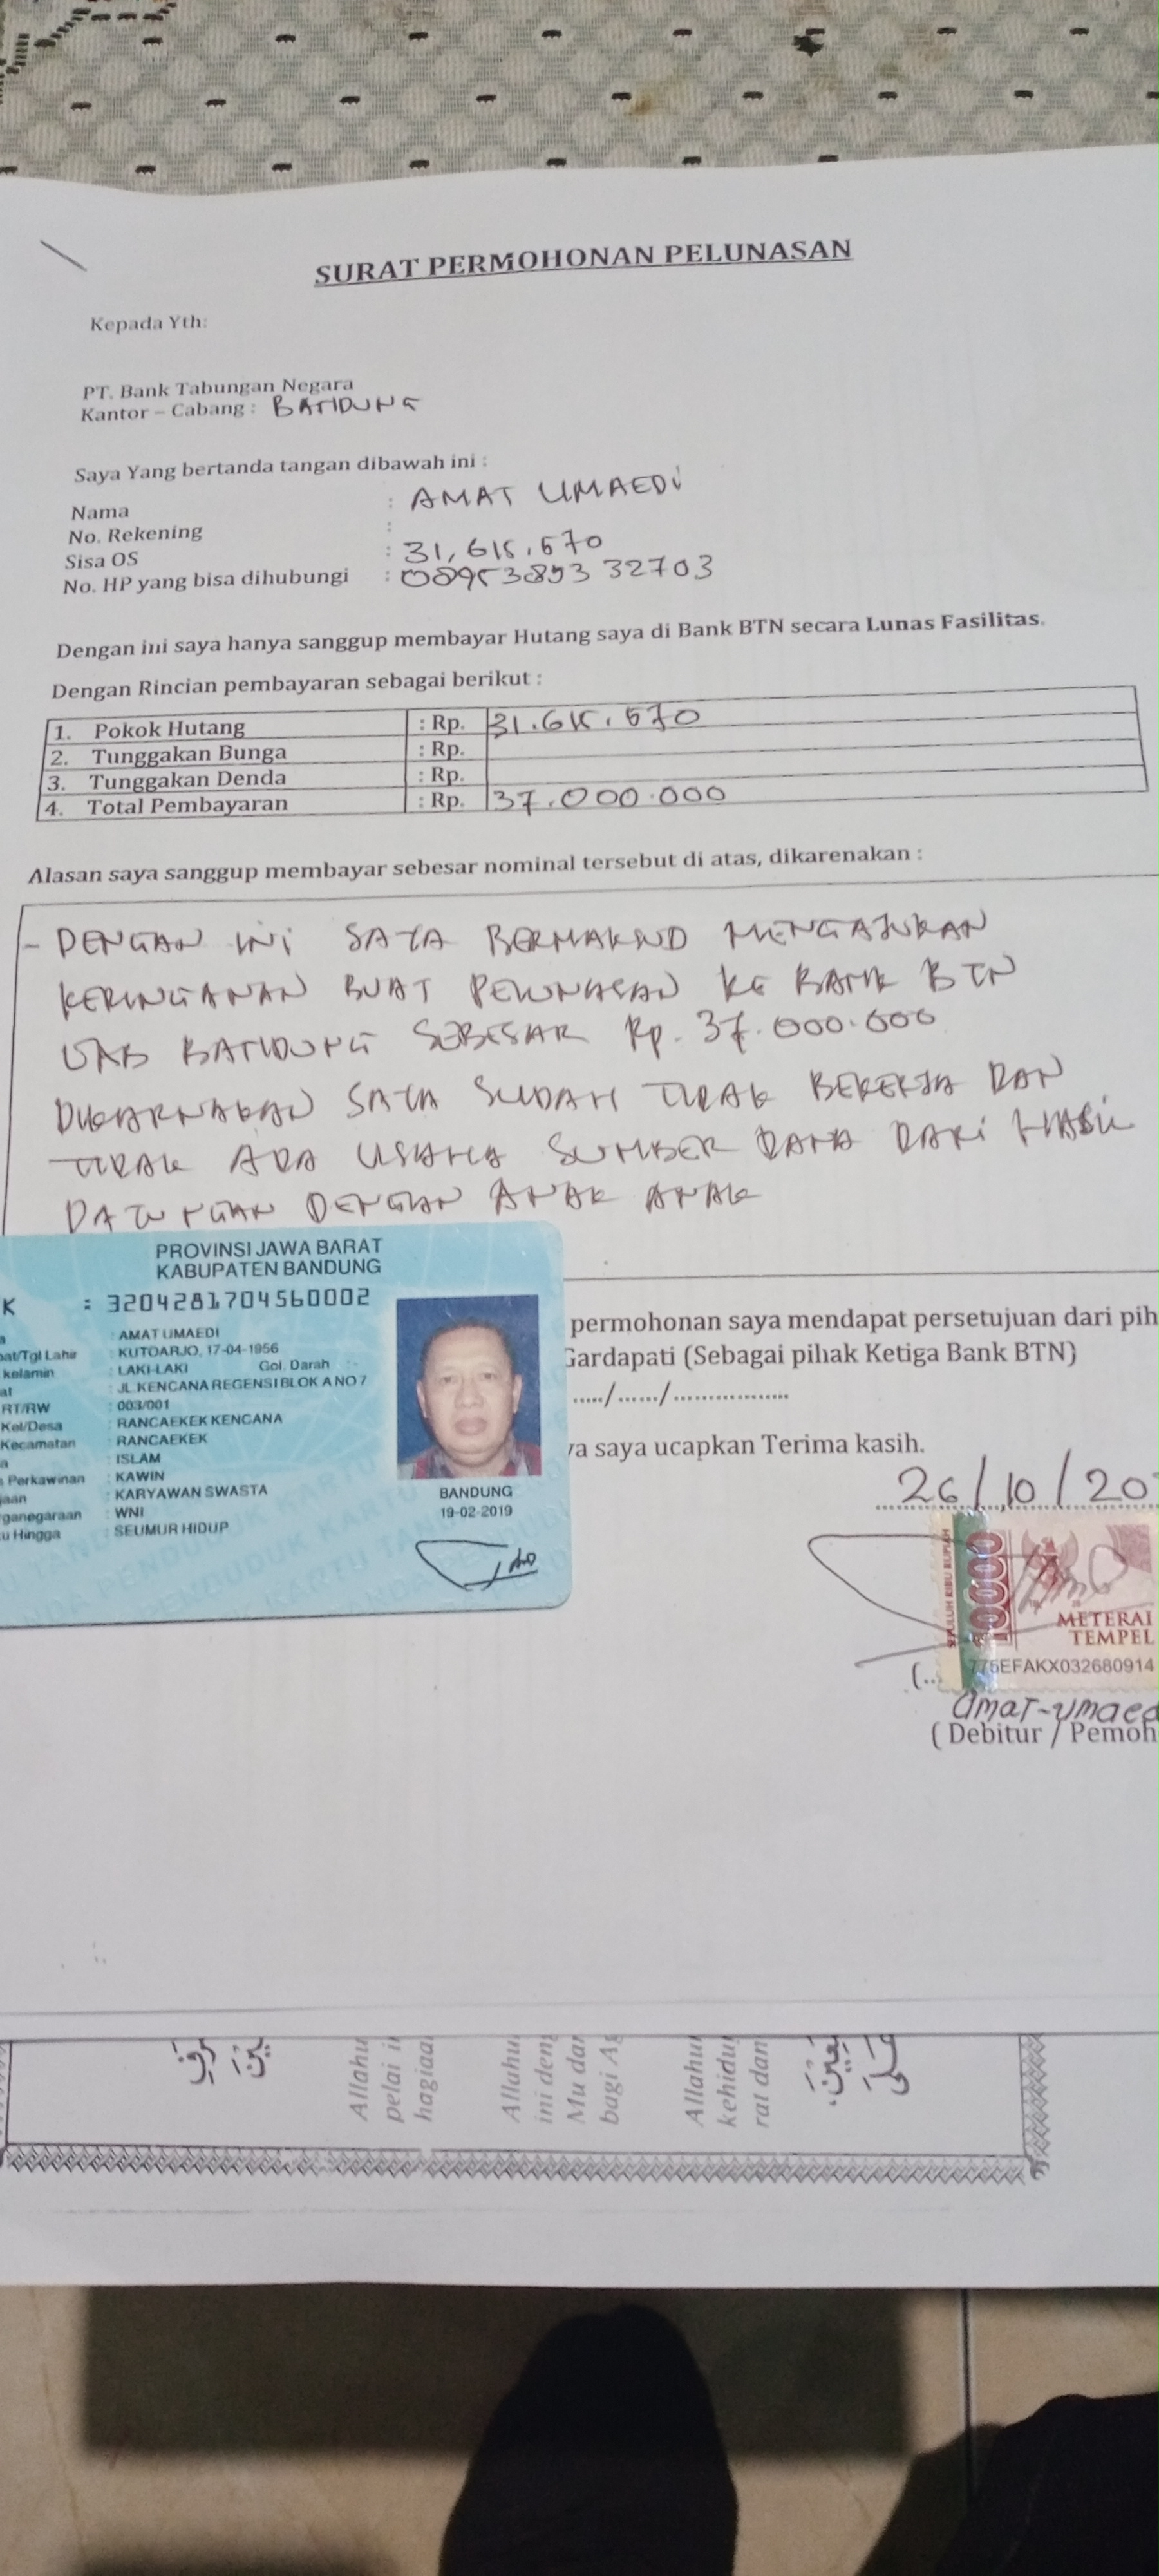 SURAT PERMOHONAN PELUNASAN
Kepada Yth:
PT. Bank Tabungan Negara
Kantor – Cabang : BANDUNG
Saya Yang bertanda tangan dibawah ini :
Nama : AMAT UMAEDI
No. Rekening :
Sisa OS : 31,615,570
No. HP yang bisa dihubungi : 0895389332703
Dengan ini saya hanya sanggup membayar Hutang saya di Bank BTN secara Lunas Fasilitas.
Dengan Rincian pembayaran sebagai berikut :
1. Pokok Hutang : Rp. 31.615.570
2. Tunggakan Bunga : Rp.
3. Tunggakan Denda : Rp.
4. Total Pembayaran : Rp. 37.000.000
Alasan saya sanggup membayar sebesar nominal tersebut di atas, dikarenakan :
- DENGAN INI SAYA BERMAKSUD MENGAJUKAN
KERINGANAN BUAT PELUNASAN KE BANK BTN
CAB BANDUNG SEBESAR Rp. 37.000.000
DIKARNAKAN SAYA SUDAH TIDAK BEKERJA DAN
TIDAK ADA USAHA SUMBER DANA DARI HASIL
PATUNGAN DENGAN ANAK ANAK
PROVINSI JAWA BARAT
KABUPATEN BANDUNG
K : 3204281704560002
a : AMAT UMAEDI
pat/Tgl Lahir : KUTOARJO, 17-04-1956
kelamin : LAKI-LAKI Gol. Darah : -
at : JL. KENCANA REGENSI BLOK A NO 7
RT/RW : 003/001
Kel/Desa : RANCAEKEK KENCANA
Kecamatan : RANCAEKEK
a : ISLAM
s Perkawinan : KAWIN
jaan : KARYAWAN SWASTA
rganegaraan : WNI
u Hingga : SEUMUR HIDUP
BANDUNG
19-02-2019
permohonan saya mendapat persetujuan dari pih
Gardapati (Sebagai pihak Ketiga Bank BTN)
...../....../.................
ya saya ucapkan Terima kasih.
26/10/20
SEPULUH RIBU RUPIAH
10000
METERAI
TEMPEL
775EFAKX032680914
(..
amat-umaed
( Debitur / Pemoh
Allahu
pelai i
hagiaa
Allahu
ini den
Mu dar
bagi A
Allahu
kehidu
rat dan